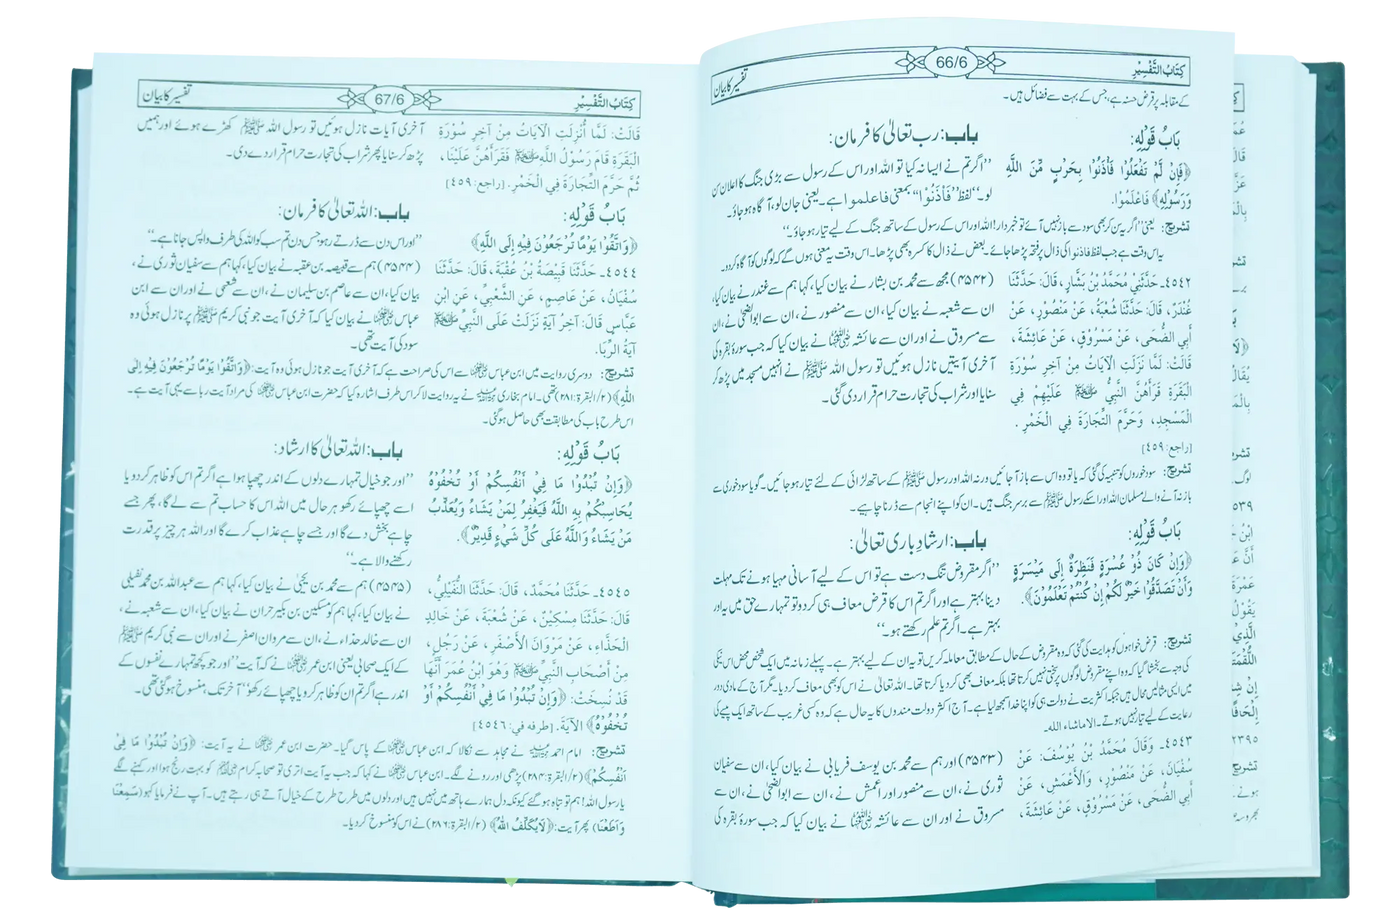 كِتَابُ التَّفْسِيْرِ 66/6 تفسیر کا بیان
کے مقابلہ پر قرض حسنہ ہے، جس کے بہت سے فضائل ہیں۔
بَابُ قَوْلِهِ:
﴿فَإِنْ لَّمْ تَفْعَلُوْا فَأْذَنُوْا بِحَرْبٍ مِّنَ اللّٰهِ
وَرَسُوْلِهِ﴾ فَاعْلَمُوْا.
باب: رب تعالیٰ کا فرمان:
’’اگر تم نے ایسا نہ کیا تو اللہ اور اس کے رسول سے بڑی جنگ کا اعلان سن
لو۔‘‘ لفظ ’’فَأْذَنُوْا‘‘ بمعنی فاعلموا ہے۔ یعنی جان لو، آگاہ ہو جاؤ۔
تشریح: یعنی ’’اگر یہ سن کر بھی سود سے باز نہیں آتے تو خبردار! اللہ اور اس کے رسول کے ساتھ جنگ کے لیے تیار ہو جاؤ۔‘‘
یہ اس وقت ہے جب لفظ فاذنوا کی ذال پر فتحہ پڑھا جائے۔ بعض نے ذال کا کسرہ بھی پڑھا۔ اس وقت یہ معنی ہوں گے کہ لوگوں کو آگاہ کر دو۔
٤٥٤٢۔ حَدَّثَنِيْ مُحَمَّدُ بْنُ بَشَّارٍ، قَالَ: حَدَّثَنَا
غُنْدَرٌ، قَالَ: حَدَّثَنَا شُعْبَةُ، عَنْ مَنْصُوْرٍ، عَنْ
أَبِي الضُّحَى، عَنْ مَسْرُوْقٍ، عَنْ عَائِشَةَ،
قَالَتْ: لَمَّا نَزَلَتِ الْآيَاتُ مِنْ آخِرِ سُوْرَةِ
الْبَقَرَةِ قَرَأَهُنَّ النَّبِيُّ ﷺ عَلَيْهِمْ فِي
الْمَسْجِدِ، وَحَرَّمَ التِّجَارَةَ فِي الْخَمْرِ.
[راجع: ٤٥٩]
(۴۵۴۲) مجھ سے محمد بن بشار نے بیان کیا، کہا ہم سے غندر نے بیان کیا،
ان سے شعبہ نے بیان کیا، ان سے منصور نے، ان سے ابوالضحیٰ نے، ان
سے مسروق نے اور ان سے عائشہ رضی اللہ عنہا نے بیان کیا کہ جب سورۂ بقرہ کی
آخری آیتیں نازل ہوئیں تو رسول اللہ ﷺ نے انہیں مسجد میں پڑھ کر
سنایا اور شراب کی تجارت حرام قرار دی گئی۔
تشریح: سود خوروں کو تنبیہ کی گئی کہ یا تو وہ اس سے باز آ جائیں ورنہ اللہ اور رسول ﷺ کے ساتھ لڑائی کے لئے تیار ہو جائیں۔ گویا سود خوری سے
باز نہ آنے والے مسلمان اللہ اور اسکے رسول ﷺ سے برسر جنگ ہیں۔ ان کو اپنے انجام سے ڈرنا چاہیے۔
بَابُ قَوْلِهِ:
﴿وَإِنْ كَانَ ذُوْ عُسْرَةٍ فَنَظِرَةٌ إِلَى مَيْسَرَةٍ
وَأَنْ تَصَدَّقُوْا خَيْرٌ لَّكُمْ إِنْ كُنْتُمْ تَعْلَمُوْنَ﴾.
باب: ارشاد باری تعالیٰ:
’’اگر مقروض تنگ دست ہے تو اس کے لیے آسانی مہیا ہونے تک مہلت
دینا بہتر ہے اور اگر تم اس کا قرض معاف ہی کر دو تو تمہارے حق میں یہ اور
بہتر ہے۔ اگر تم علم رکھتے ہو۔‘‘
تشریح: قرض خواہوں کو ہدایت کی گئی کہ وہ مقروض کے حال کے مطابق معاملہ کریں تو یہ ان کے لیے بہتر ہے۔ پہلے زمانہ میں ایک شخص محض اس نیکی
کی وجہ سے بخشا گیا کہ وہ اپنے مقروض لوگوں پر سختی نہیں کرتا تھا بلکہ معاف بھی کر دیا کرتا تھا۔ اللہ تعالیٰ نے اس کو بھی معاف کر دیا۔ مگر آج کے مادی دور
میں ایسی مثالیں محال ہیں جبکہ اکثریت نے دولت ہی کو اپنا خدا سمجھ لیا ہے۔ آج اکثر دولت مندوں کا یہ حال ہے کہ وہ کسی غریب کے ساتھ ایک پیسے کی
رعایت کے لیے تیار نہیں ہوتے۔ الا ماشاء اللہ۔
٤٥٤٣۔ وَقَالَ مُحَمَّدُ بْنُ يُوْسُفَ: عَنْ
سُفْيَانَ، عَنْ مَنْصُوْرٍ، وَالْأَعْمَشِ، عَنْ
أَبِي الضُّحَى، عَنْ مَسْرُوْقٍ، عَنْ عَائِشَةَ،
(۴۵۴۳) اور ہم سے محمد بن یوسف فریابی نے بیان کیا، ان سے سفیان
ثوری نے، ان سے منصور اور اعمش نے، ان سے ابوالضحیٰ نے، ان سے
مسروق نے اور ان سے عائشہ رضی اللہ عنہا نے بیان کیا کہ جب سورۂ بقرہ کی
كِتَابُ التَّفْسِيْرِ 67/6 تفسیر کا بیان
قَالَتْ: لَمَّا أُنْزِلَتِ الْآيَاتُ مِنْ آخِرِ سُوْرَةِ
الْبَقَرَةِ قَامَ رَسُوْلُ اللّٰهِ ﷺ فَقَرَأَهُنَّ عَلَيْنَا،
ثُمَّ حَرَّمَ التِّجَارَةَ فِي الْخَمْرِ. [راجع: ٤٥٩]
آخری آیات نازل ہوئیں تو رسول اللہ ﷺ کھڑے ہوئے اور ہمیں
پڑھ کر سنایا پھر شراب کی تجارت حرام قرار دے دی۔
بَابُ قَوْلِهِ:
﴿وَاتَّقُوْا يَوْمًا تُرْجَعُوْنَ فِيْهِ إِلَى اللّٰهِ﴾
باب: اللہ تعالیٰ کا فرمان:
’’اور اس دن سے ڈرتے رہو جس دن تم سب کو اللہ کی طرف واپس جانا ہے۔‘‘
٤٥٤٤۔ حَدَّثَنَا قَبِيْصَةُ بْنُ عُقْبَةَ، قَالَ: حَدَّثَنَا
سُفْيَانُ، عَنْ عَاصِمٍ، عَنِ الشَّعْبِيِّ، عَنِ ابْنِ
عَبَّاسٍ قَالَ: آخِرُ آيَةٍ نَزَلَتْ عَلَى النَّبِيِّ ﷺ
آيَةُ الرِّبَا.
(۴۵۴۴) ہم سے قبیصہ بن عقبہ نے بیان کیا، کہا ہم سے سفیان ثوری نے،
بیان کیا، ان سے عاصم بن سلیمان نے، ان سے شعبی نے اور ان سے ابن
عباس رضی اللہ عنہما نے بیان کیا کہ آخری آیت جو نبی کریم ﷺ پر نازل ہوئی وہ
سود کی آیت تھی۔
تشریح: دوسری روایت میں ابن عباس رضی اللہ عنہما سے اس کی صراحت ہے کہ آخری آیت جو نازل ہوئی وہ آیت: ﴿وَاتَّقُوْا يَوْمًا تُرْجَعُوْنَ فِيْهِ إِلَى
اللّٰهِ﴾ (۲/البقرۃ:۲۸۱) تھی۔ امام بخاری رحمہ اللہ نے یہ روایت لا کر اس طرف اشارہ کیا کہ حضرت ابن عباس رضی اللہ عنہما کی مراد آیت ربا سے یہی آیت ہے۔
اس طرح باب کی مطابقت بھی حاصل ہو گئی۔
بَابُ قَوْلِهِ:
﴿وَإِنْ تُبْدُوْا مَا فِيْ أَنْفُسِكُمْ أَوْ تُخْفُوْهُ
يُحَاسِبْكُمْ بِهِ اللّٰهُ فَيَغْفِرُ لِمَنْ يَشَاءُ وَيُعَذِّبُ
مَنْ يَشَاءُ وَاللّٰهُ عَلَى كُلِّ شَيْءٍ قَدِيْرٌ﴾.
باب: اللہ تعالیٰ کا ارشاد:
’’اور جو خیال تمہارے دلوں کے اندر چھپا ہوا ہے اگر تم اس کو ظاہر کر دو یا
اسے چھپائے رکھو ہر حال میں اللہ اس کا حساب تم سے لے گا، پھر جسے
چاہے بخش دے گا اور جسے چاہے عذاب کرے گا اور اللہ ہر چیز پر قدرت
رکھنے والا ہے۔‘‘
٤٥٤٥۔ حَدَّثَنَا مُحَمَّدٌ، قَالَ: حَدَّثَنَا النُّفَيْلِيُّ،
قَالَ: حَدَّثَنَا مِسْكِيْنٌ، عَنْ شُعْبَةَ، عَنْ خَالِدٍ
الْحَذَّاءِ، عَنْ مَرْوَانَ الْأَصْفَرِ، عَنْ رَجُلٍ،
مِنْ أَصْحَابِ النَّبِيِّ ﷺ وَهُوَ ابْنُ عُمَرَ أَنَّهَا
قَدْ نُسِخَتْ: ﴿وَإِنْ تُبْدُوْا مَا فِيْ أَنْفُسِكُمْ أَوْ
تُخْفُوْهُ﴾ الْآيَةَ. [طرفه في: ٤٥٤٦]
(۴۵۴۵) ہم سے محمد بن یحییٰ نے بیان کیا، کہا ہم سے عبداللہ بن محمد نفیلی
نے بیان کیا، کہا ہم کو مسکین بن بکیر حران نے بیان کیا، ان سے شعبہ نے،
ان سے خالد حذاء نے، ان سے مروان اصفر نے اور ان سے نبی کریم ﷺ
کے ایک صحابی یعنی ابن عمر رضی اللہ عنہما نے کہ آیت ’’اور جو کچھ تمہارے نفسوں کے
اندر ہے اگر تم ان کو ظاہر کرو یا چھپائے رکھو‘‘ آخر تک منسوخ ہو گئی تھی۔
تشریح: امام احمد رحمہ اللہ نے مجاہد سے نکالا کہ ابن عباس رضی اللہ عنہما کے پاس گیا۔ حضرت ابن عمر رضی اللہ عنہما نے یہ آیت: ﴿وَإِنْ تُبْدُوْا مَا فِيْ
أَنْفُسِكُمْ﴾ (۲/البقرۃ:۲۸۴) پڑھی اور رونے لگے۔ ابن عباس رضی اللہ عنہما نے کہا کہ جب یہ آیت اتری تو صحابہ کرام رضی اللہ عنہم کو بہت رنج ہوا اور کہنے لگے
یا رسول اللہ! ہم تو تباہ ہو گئے کیونکہ دل ہمارے ہاتھ میں نہیں ہیں اور دلوں میں طرح طرح کے خیال آتے ہی رہتے ہیں۔ آپ نے فرمایا کہو (سَمِعْنَا
وَأَطَعْنَا) پھر آیت: ﴿لَا يُكَلِّفُ اللّٰهُ﴾ (۲/البقرۃ:۲۸۶) نے اس کو منسوخ کر دیا۔